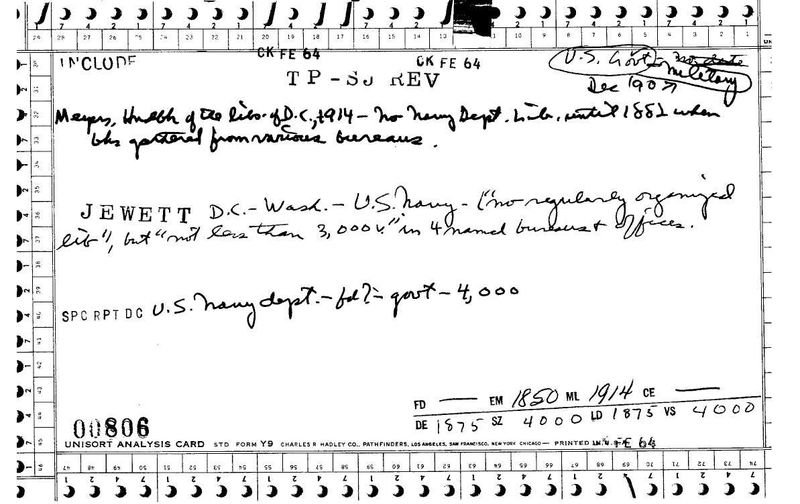 CK FE 64
INCLUDE CK FE 64
TP-SJ REV
U.S. Gov't - military
Dec 1907
Meyers, Hndbk of the libs. of D.C., 1914 - no Navy Dept. Lib. until 1882 when
bks gathered from various bureaus.
JEWETT D.C. - Wash. - U.S. Navy - ("no regularly organized
lib", but "not less than 3,000 v." in 4 named bureaus & offices.
SPC RPT DC U.S. Navy dept. - fd? - govt - 4,000
FD — EM 1850 ML 1914 CE —
DE 1875 SZ 4000 LD 1875 VS 4000
00806
UNISORT ANALYSIS CARD STD FORM Y9 CHARLES R HADLEY CO., PATHFINDERS, LOS ANGELES, SAN FRANCISCO, NEW YORK CHICAGO — PRINTED IN FE 64